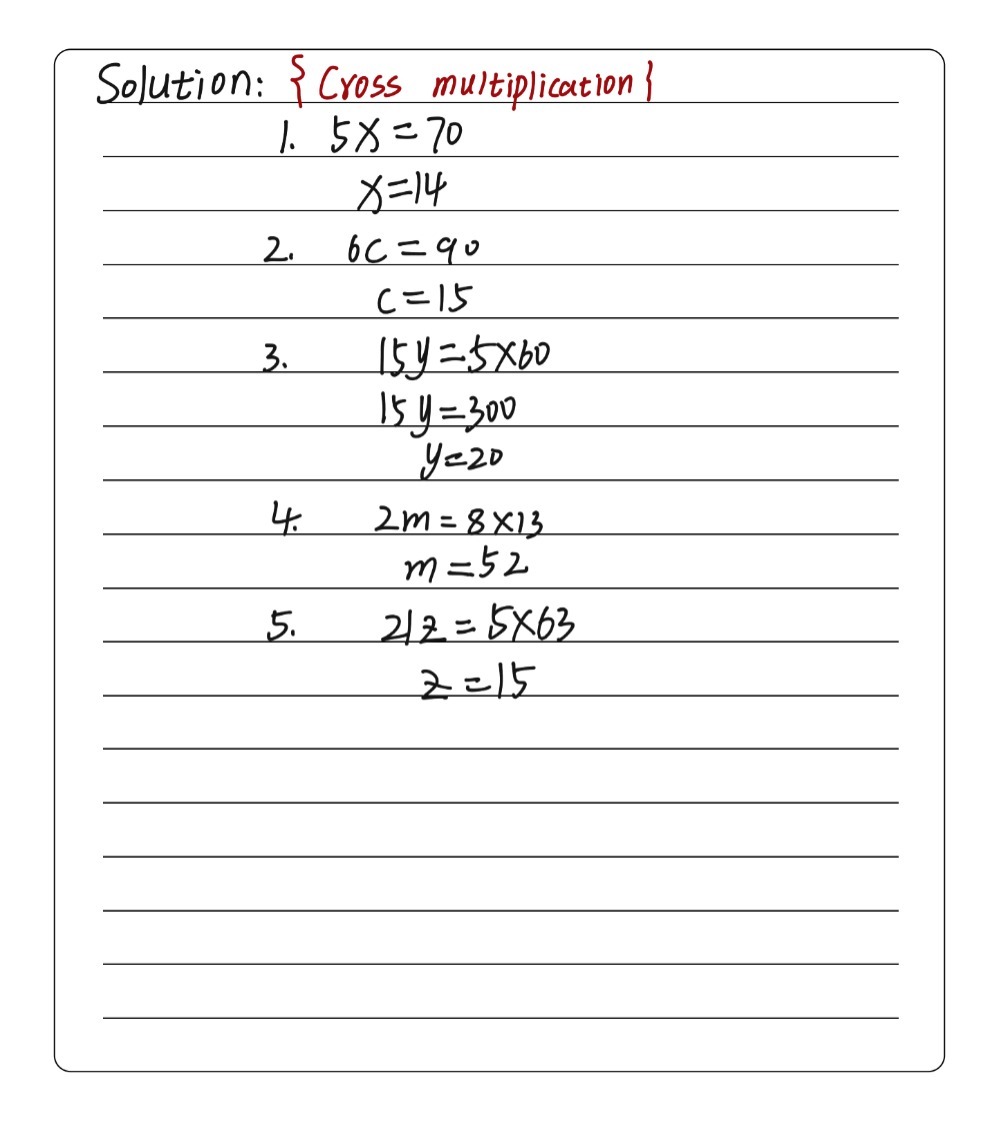 Solution: {Cross multiplication}
1. 5x=70
x=14
2. 6c=90
c=15
3. 15y=5×60
15y=300
y=20
4. 2m=8×13
m=52
5. 21z=5×63
z=15